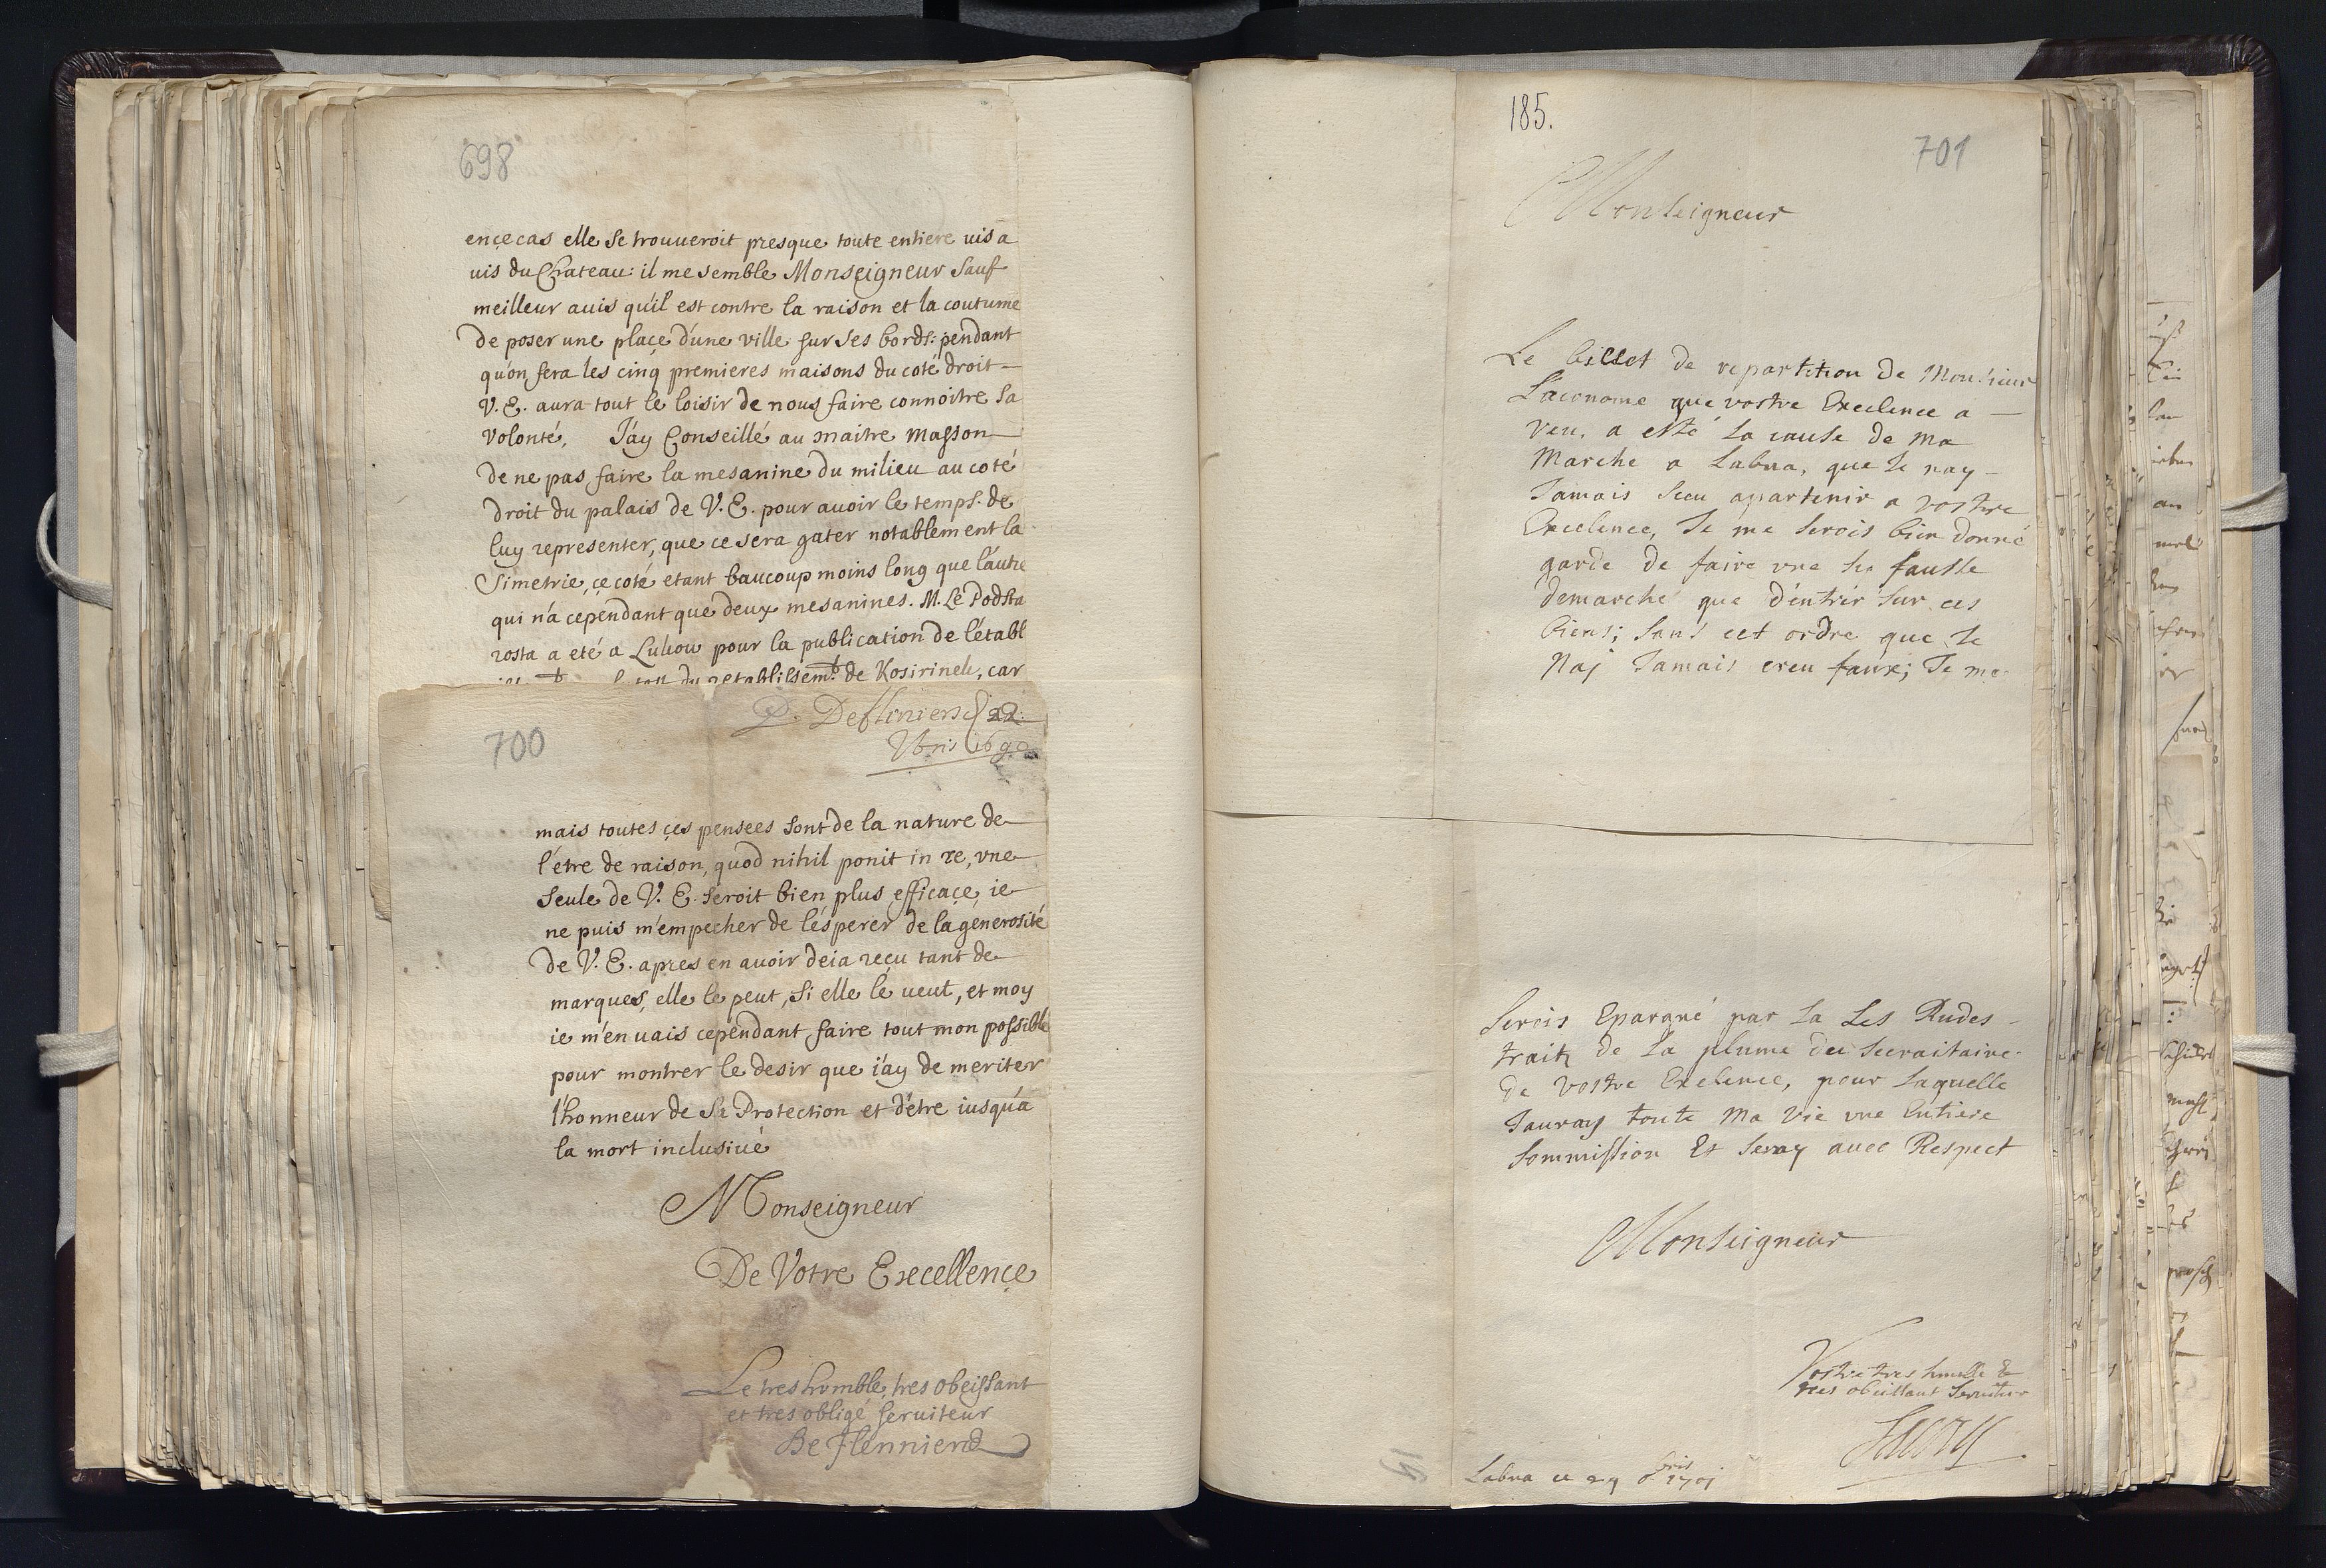 698
ençecas elle se trouueroit presque toute entiere uis a
uis du Chateau: il me semble Monseigneur sauf
meilleur auis qu'il est contre la raison et la coutume
de poser une plaçe d'une ville sur ses bords: pendant
qu'on fera les cinq premieres maisons du coté droit
V. E. aura tout le loisir de nous faire connoitre sa
volonté. J'ay Conseillé au maitre masson
de ne pas faire la mesanine du milieu au coté
droit du palais de V. E. pour auoir le temps de
luy representer, que ce sera gater notablement la
Simetrie, çe coté etant baucoup moins long que l'autre
qui n'a cependant que deux mesanines. M. Le Podsta
rosta a eté a Lukou pour la publication de l'établ
du retablissemt de Kosirinek, car
700
22
mais toutes çes pensees sont de la nature de
l'etre de raison, quod nihil ponit in re, vne
seule de V. E. seroit bien plus efficaçe, ie
ne puis m'empecher de l'esperer de la generosité
de V. E. apres en auoir deia reçu tant de
marques, elle le peut, si elle le ueut, et moy
ie m'en uais cependant faire tout mon possible
pour montrer le desir que i'ay de meriter
l'honneur de sa Protection et d'etre iusqu'a
la mort inclusiué
Monseigneur
De Votre Execellençe
Le tres humble, tres obeissant
et tres obligé seruiteur
185.
701
Monseigneur
Le billet de repartition de Monsieur
L'aconome que vostre Excelence a
veu, a esté la cause de ma
Marche a Labna, que Je nay
Jamais sceu apartenir a vostre
Excelence, Je me serois bien donné
garde de faire vne si fausse
demarche que d'entrer sur ces
biens; sans cet ordre que Je
Naj Jamais creu faux; Je me
serois Epargné par la Les Rudes
trait de la plume du secraitaire
de vostre Exelence, pour laquelle
Jauray toute ma vie vne Entiere
sommission Et seray auec Respect
Monseigneur
Vostre tres humble &
tres obeissant seruiteur
Labna ce 29 8bris 1701